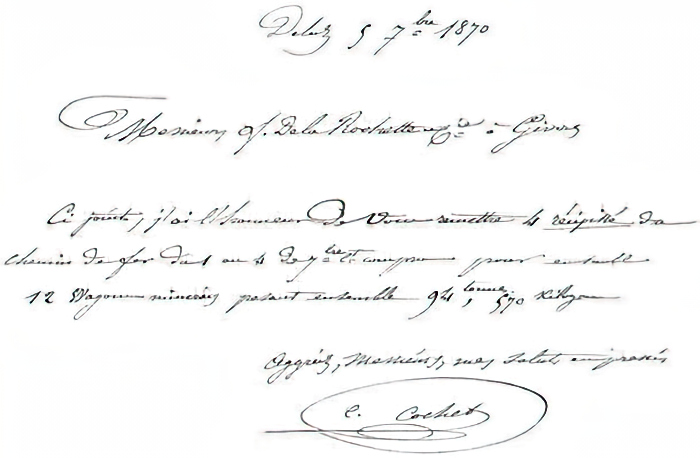 Deluz 5 7bre 1870
Messieurs J. De la Rochette & Cie à Givors
Ci joint, j'ai l'honneur De Vous remettre 4 récépissé du
chemin de fer du 1 au 4 de 7bre et compris pour ensemble
12 Wagons minerais pesant ensemble 94 tonne, 570 Kilog
Aggréez, Messieurs, mes saluts empressés
C. Cochet